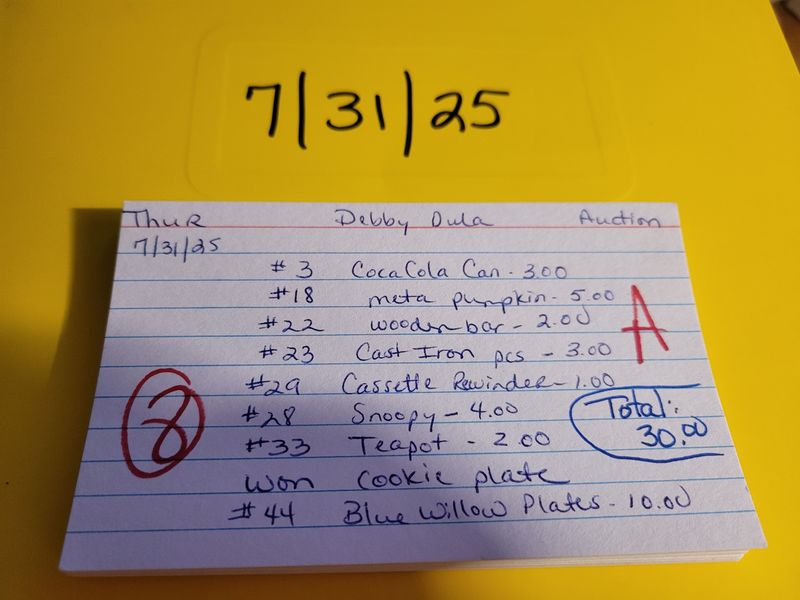 7/31/25
Thur Debby Dula Auction
7/31/25
#3 CocaCola Can - 3.00
#18 meta pumpkin - 5.00
#22 wooden bar - 2.00
A
#23 Cast Iron pcs - 3.00
#29 Cassette Rewinder - 1.00
#28 Snoopy - 4.00
Total:
30.00
8
#33 Teapot - 2.00
won cookie plate
#44 Blue Willow Plates - 10.00